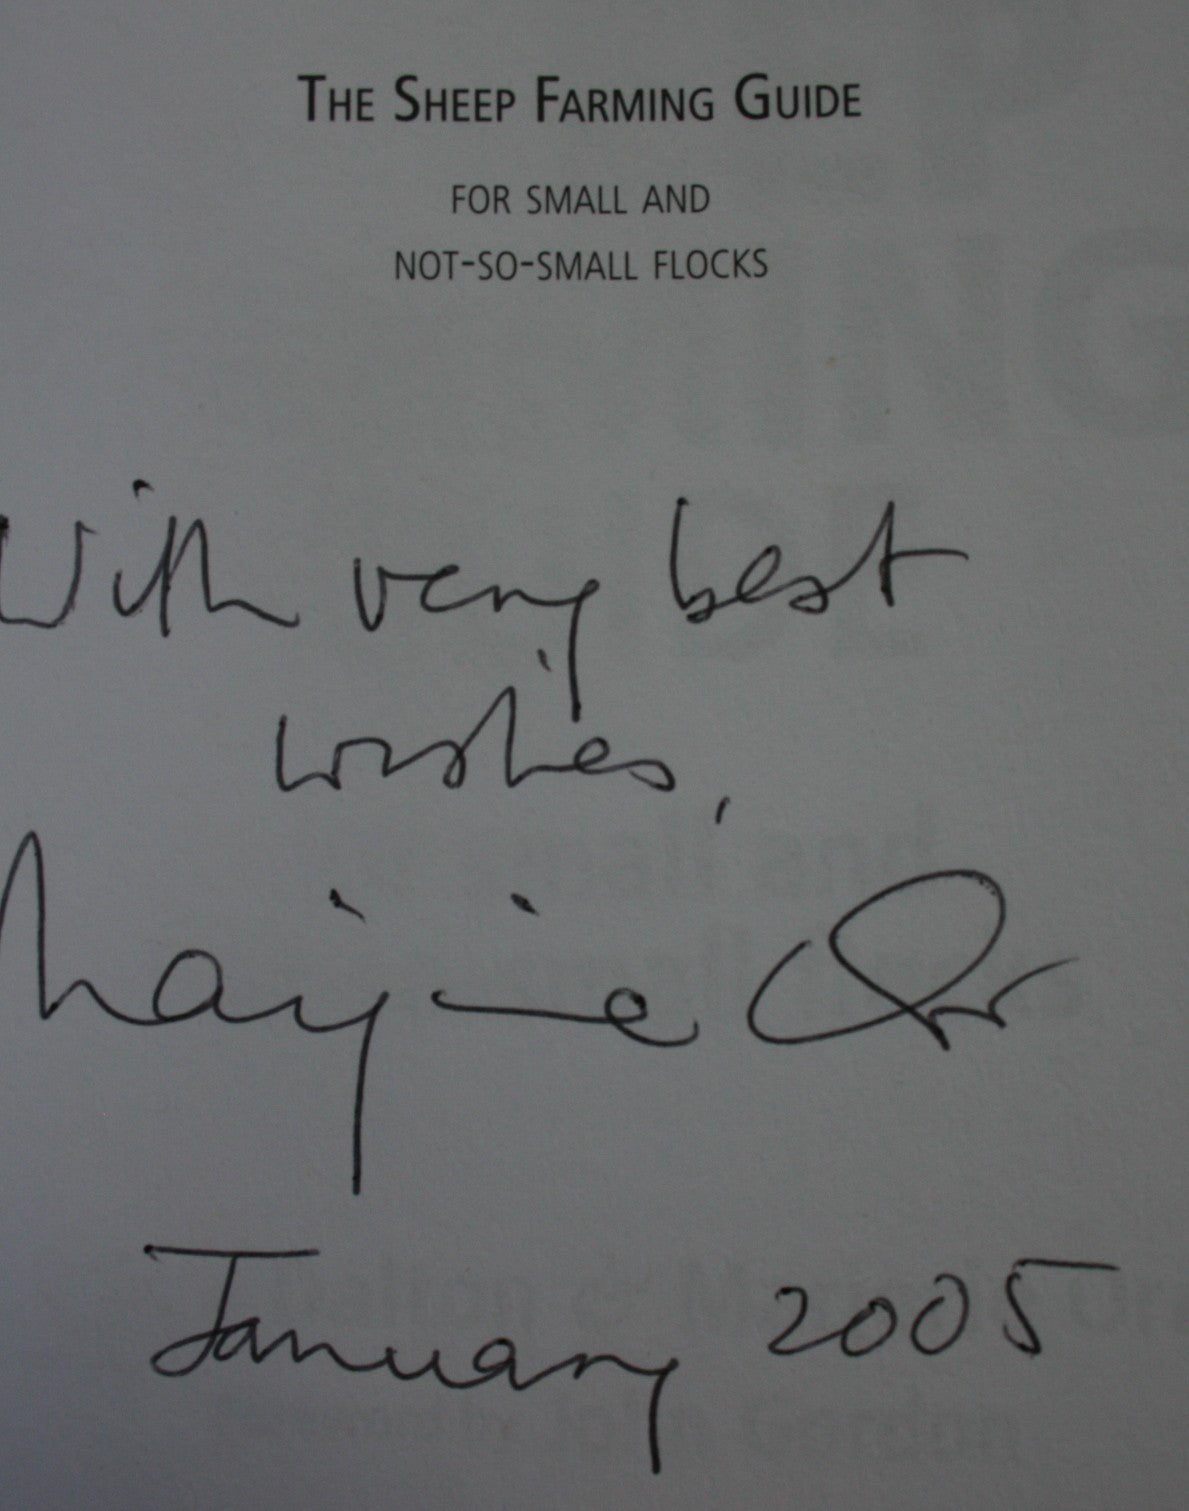 THE SHEEP FARMING GUIDE
FOR SMALL AND
NOT-SO-SMALL FLOCKS
With very best
wishes,
Marjorie Orr
January 2005